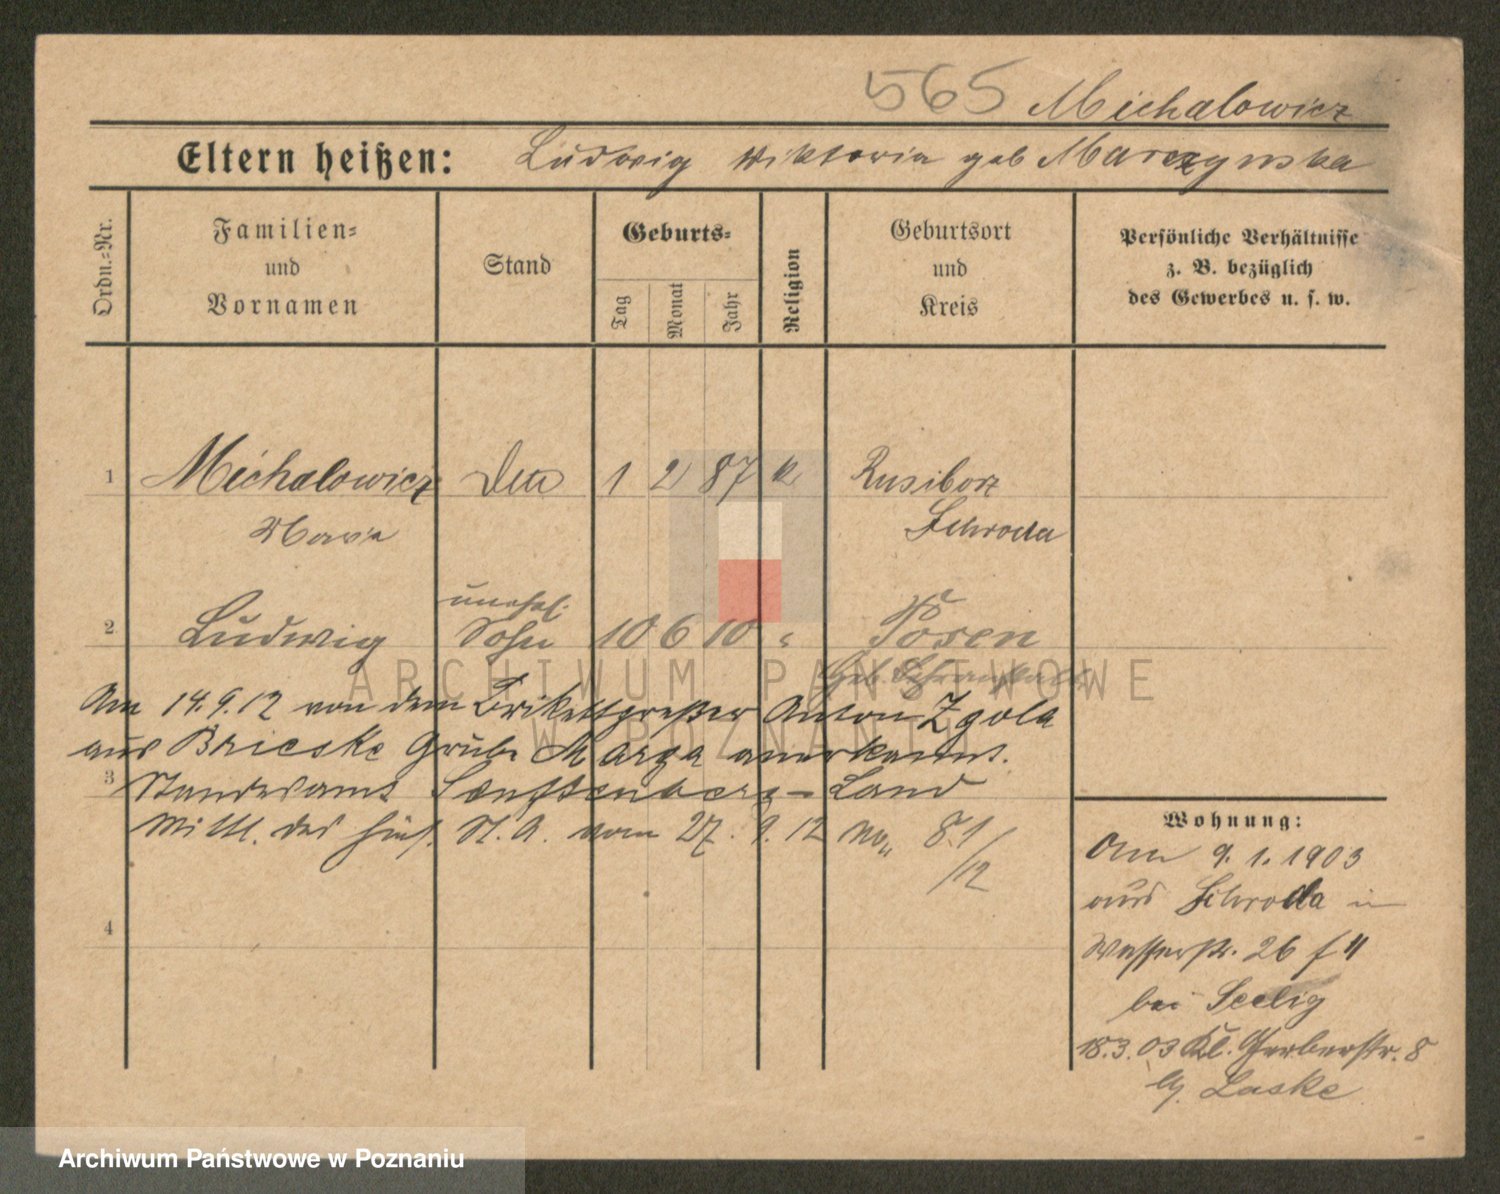 565 Michalowicz
Eltern heißen: Ludwig Wiktoria geb Marczynska
Ordn.-Nr.
Familien-
und
Vornamen
Stand
Geburts-
Tag
Monat
Jahr
Religion
Geburtsort
und
Kreis
Persönliche Verhältnisse
z. B. bezüglich
des Gewerbes u. s. w.
1 Michalowicz 1 2 87 k Rusiborz
Maria Schroda
unehel.
2 Ludwig Sohn 10 6 10 " Posen
Geb.
Am 14.9.12 von dem Brikettpresser Anton Zgola
aus Brieske Grube Marga anerkannt.
3 Standesamt Senftenberg-Land
Mittl. des hies. St. A. vom 27. 9. 12 No. 81
/12
4
Wohnung:
Am 9. 1. 1903
aus Schroda in
Wasserstr. 26
bei Seelig
18.3.03 Kl. Gerberstr. 8
Laske
ARCHIWUM PAŃSTWOWE
W POZNANIU
Archiwum Państwowe w Poznaniu